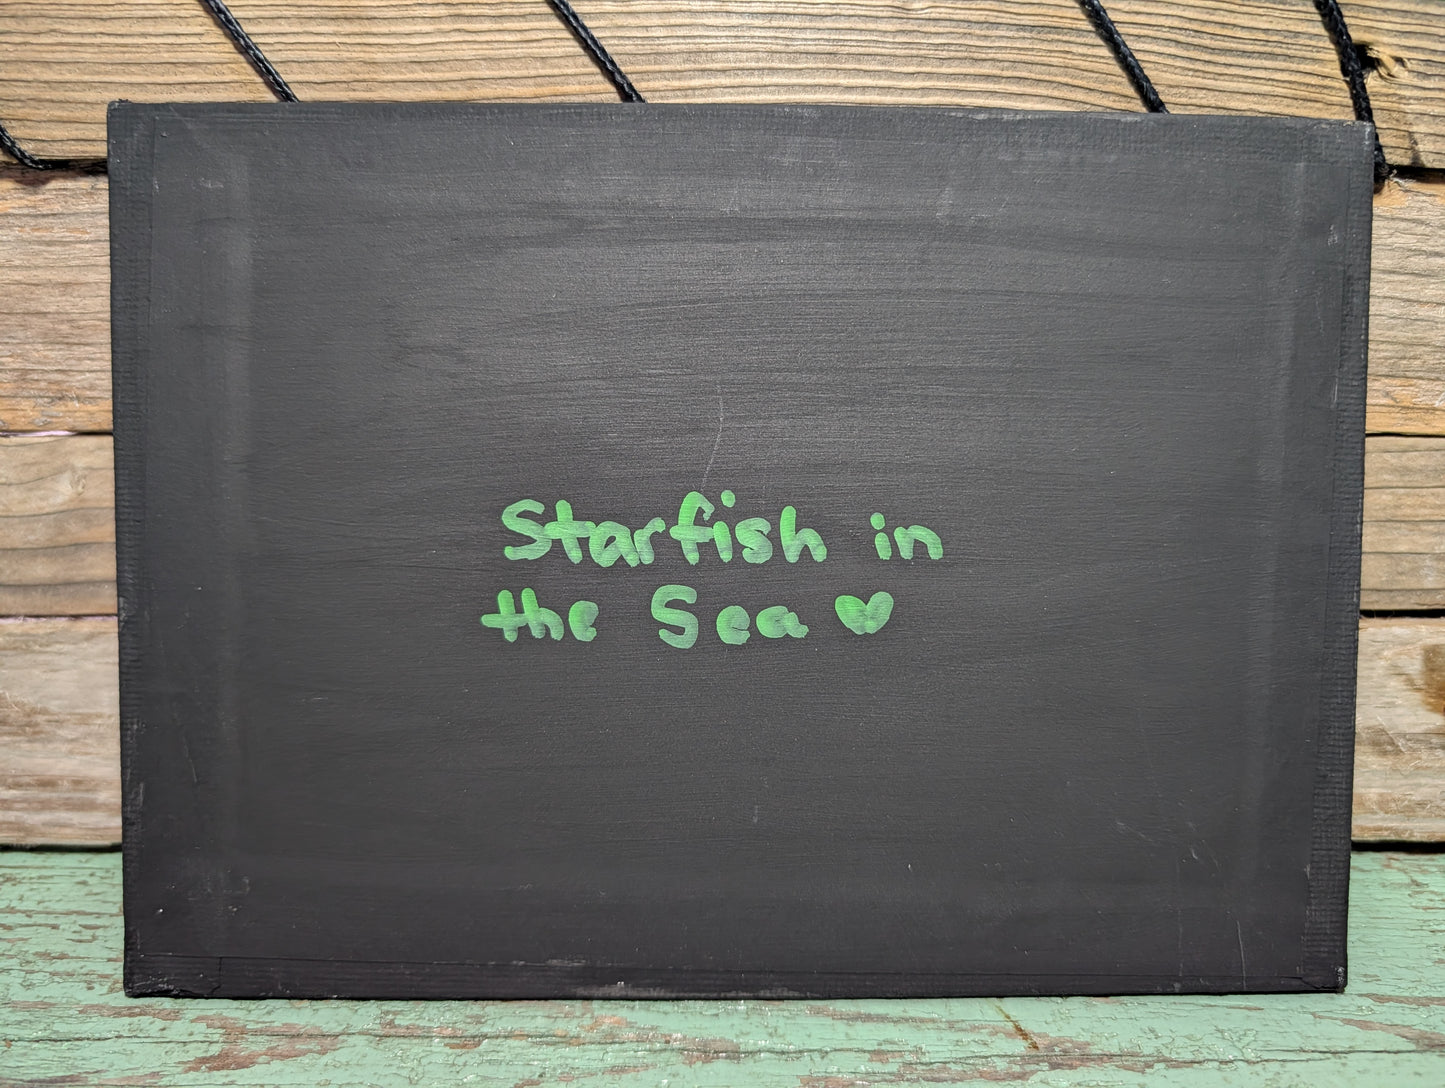 Starfish in
the Sea ♥